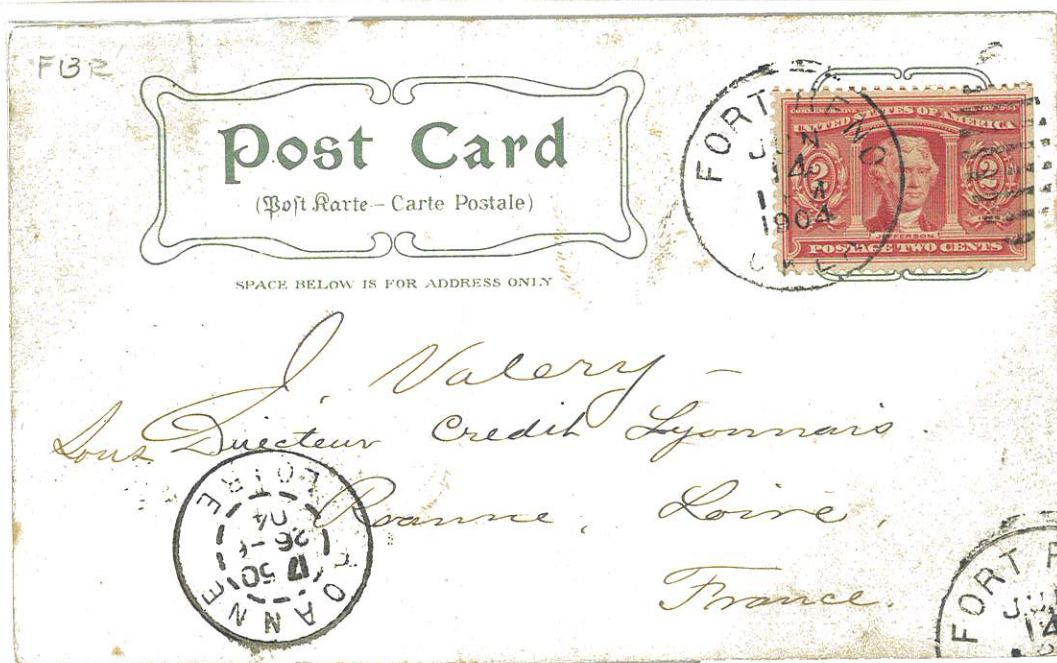 FBR
Post Card
(Post Karte – Carte Postale)
SPACE BELOW IS FOR ADDRESS ONLY
FORT RENO
JUN
14
1904
OKLA
UNITED STATES OF AMERICA
2 2
JEFFERSON
POSTAGE TWO CENTS
J. Valery –
Sous Directeur Credit Lyonnais.
Roanne, Loire,
France.
ROANNE
17 50
26 -6
04
LOIRE
FORT R
JU
14